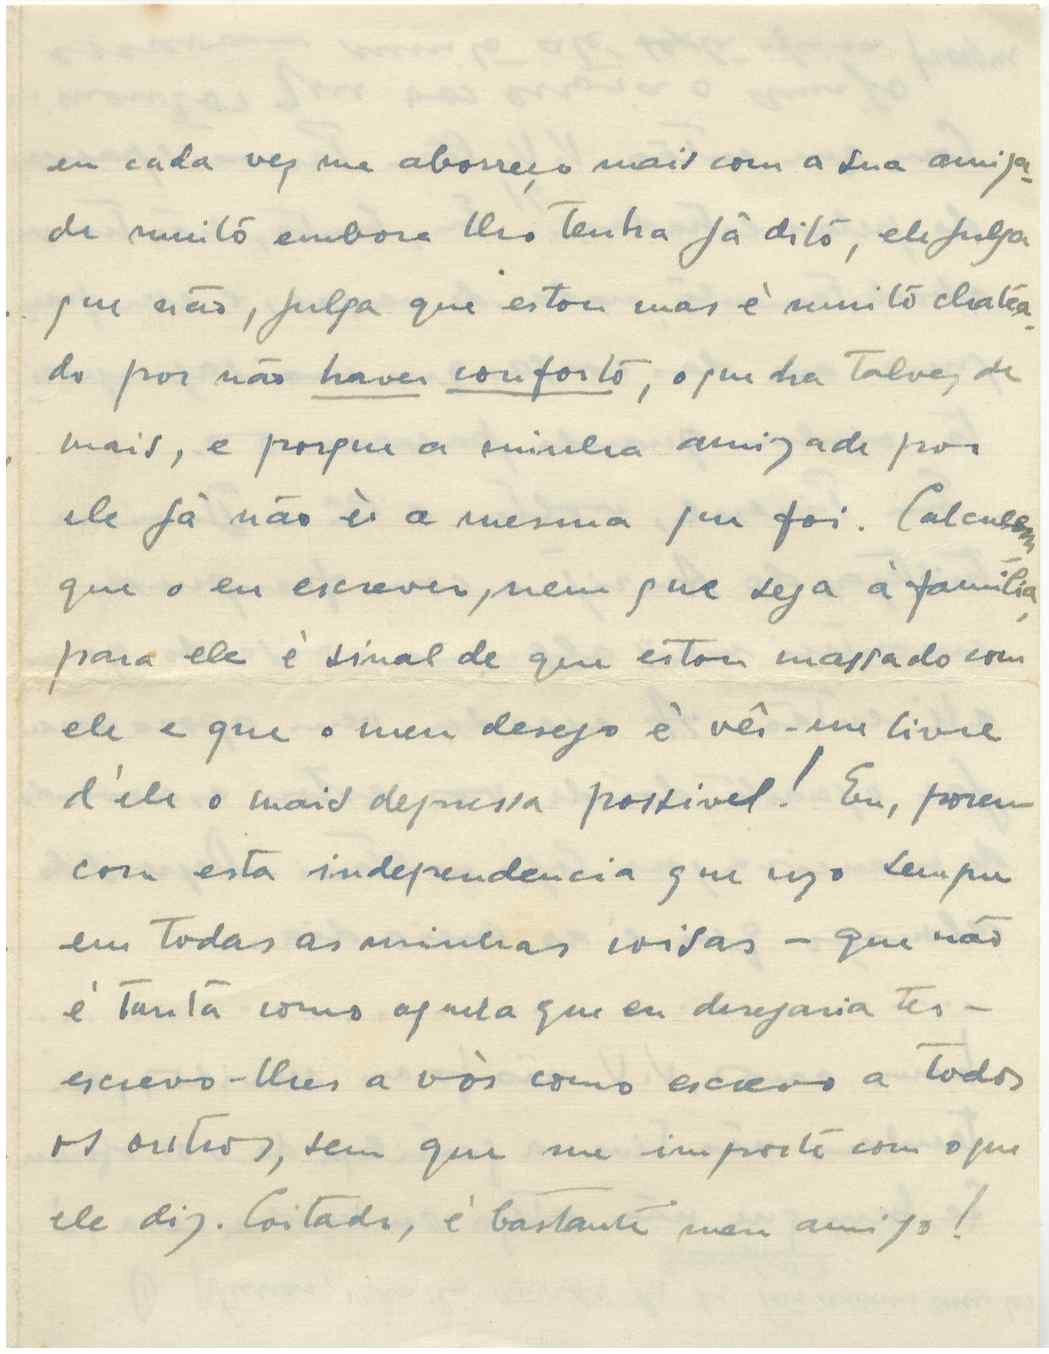 eu cada vez me aborreço mais com a sua amiza-
de muito embora lho tenha já dito, ele julga
que não, julga que estou mas é muito chatea-
do por não haver conforto, o que ha talvez de
mais, e porque a minha amizade por
ele já não é a mesma que foi. Calculem
que o eu escrever, nem que seja à família,
para ele é sinal de que estou massado com
ele e que o meu desejo é vêr-me livre
d'ele o mais depressa possivel! Eu, porem
com esta independencia que uzo sempre
em todas as minhas coisas - que não
é tanta como aquela que eu desejaria ter -
escrevo-lhes a vós como escrevo a todos
os outros, sem que me importe com o que
ele diz. Coitado, é bastante meu amigo!